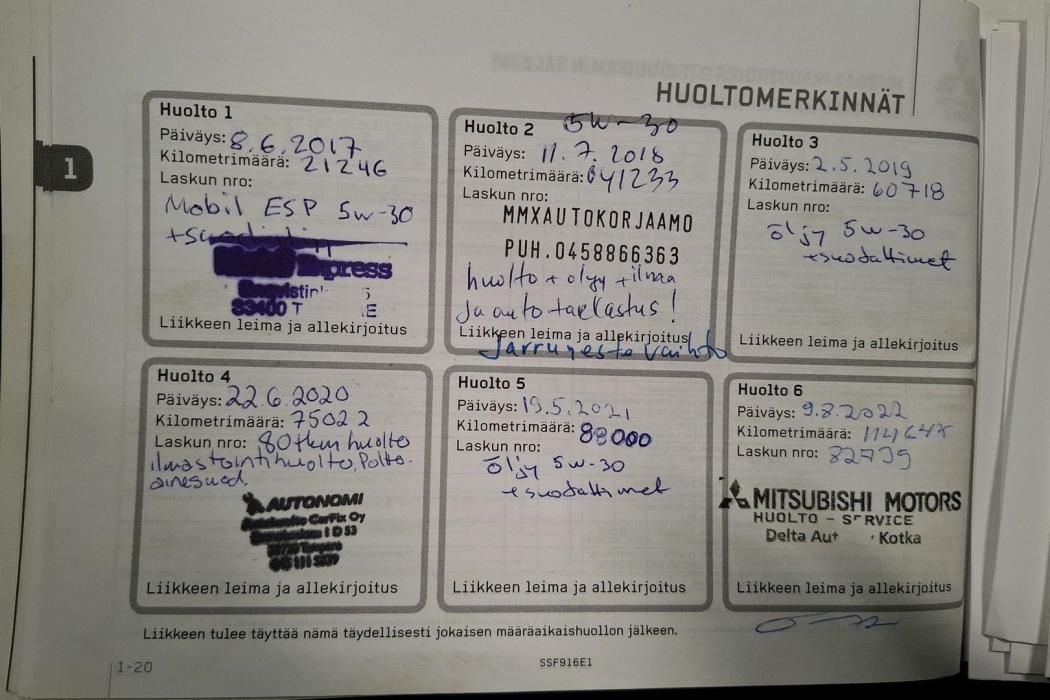 HUOLTOMERKINNÄT
1
Huolto 1
Päiväys: 8.6.2017
Kilometrimäärä: 21246
Laskun nro:
Mobil ESP 5w-30
Express
Liikkeen leima ja allekirjoitus
Huolto 2 5w-30
Päiväys: 11.7.2018
Kilometrimäärä: 041233
Laskun nro:
MMXAUTOKORJAAMO
PUH.0458866363
huolto + öljy + ilma
ja auto tarkastus!
Liikkeen leima ja allekirjoitus
Jarruneste vaihto
Huolto 3
Päiväys: 2.5.2019
Kilometrimäärä: 60718
Laskun nro:
öljy 5w-30
+suodattimet
Liikkeen leima ja allekirjoitus
Huolto 4
Päiväys: 22.6.2020
Kilometrimäärä: 75022
Laskun nro: 80tkm huolto
ilmastointihuolto, Poltto-
ainesuod.
AUTONOMI
CarFix Oy
Liikkeen leima ja allekirjoitus
Huolto 5
Päiväys: 19.5.2021
Kilometrimäärä: 88000
Laskun nro:
öljy 5w-30
+suodattimet
Liikkeen leima ja allekirjoitus
Huolto 6
Päiväys: 9.8.2022
Kilometrimäärä:
Laskun nro: 82739
MITSUBISHI MOTORS
HUOLTO - SERVICE
Delta Kotka
Liikkeen leima ja allekirjoitus
Liikkeen tulee täyttää nämä täydellisesti jokaisen määräaikaishuollon jälkeen.
1-20
SSF916E1